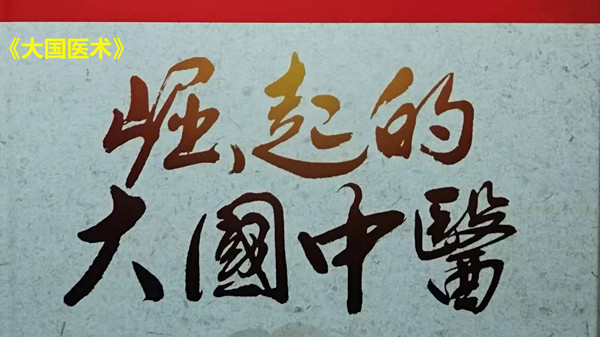 《大国医术》
崛起的
大國中醫